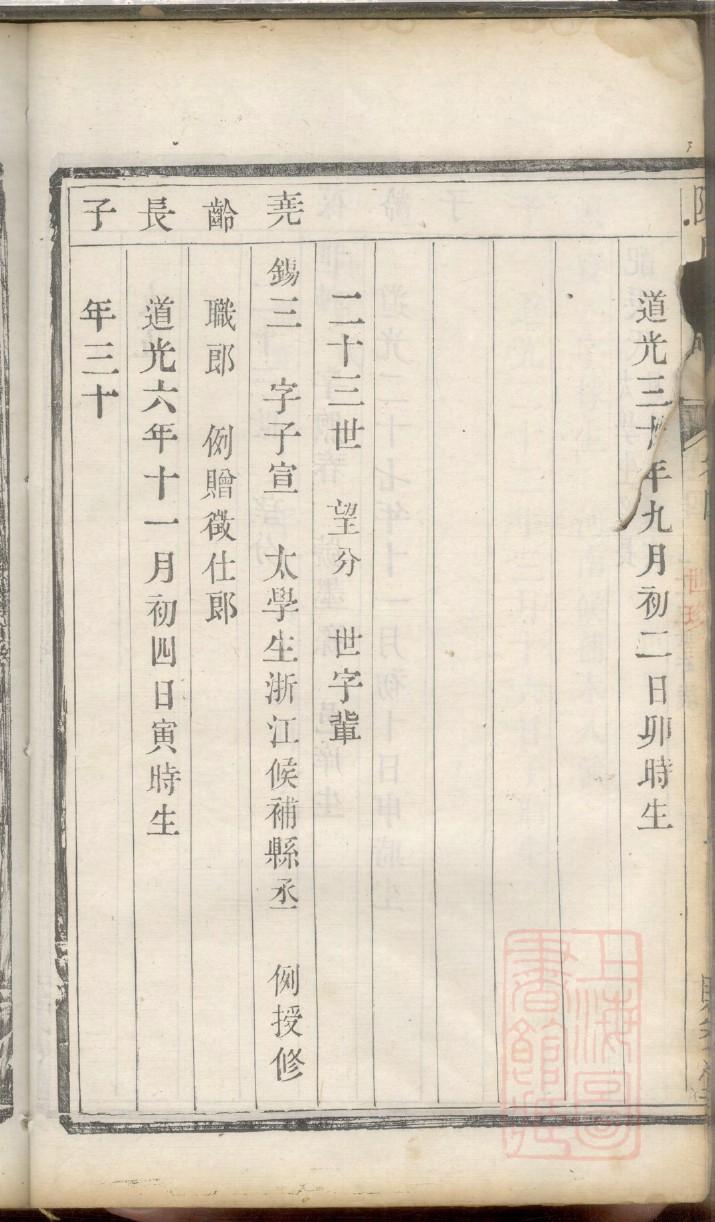 道光三十年九月初二日卯時生
二十三世 望分 世字輩
堯 錫三 字子宣 太學生浙江候補縣丞 例授修
齡 職郎 例贈徵仕郎
長 道光六年十一月初四日寅時生
子 年三十
上海圖
書館藏